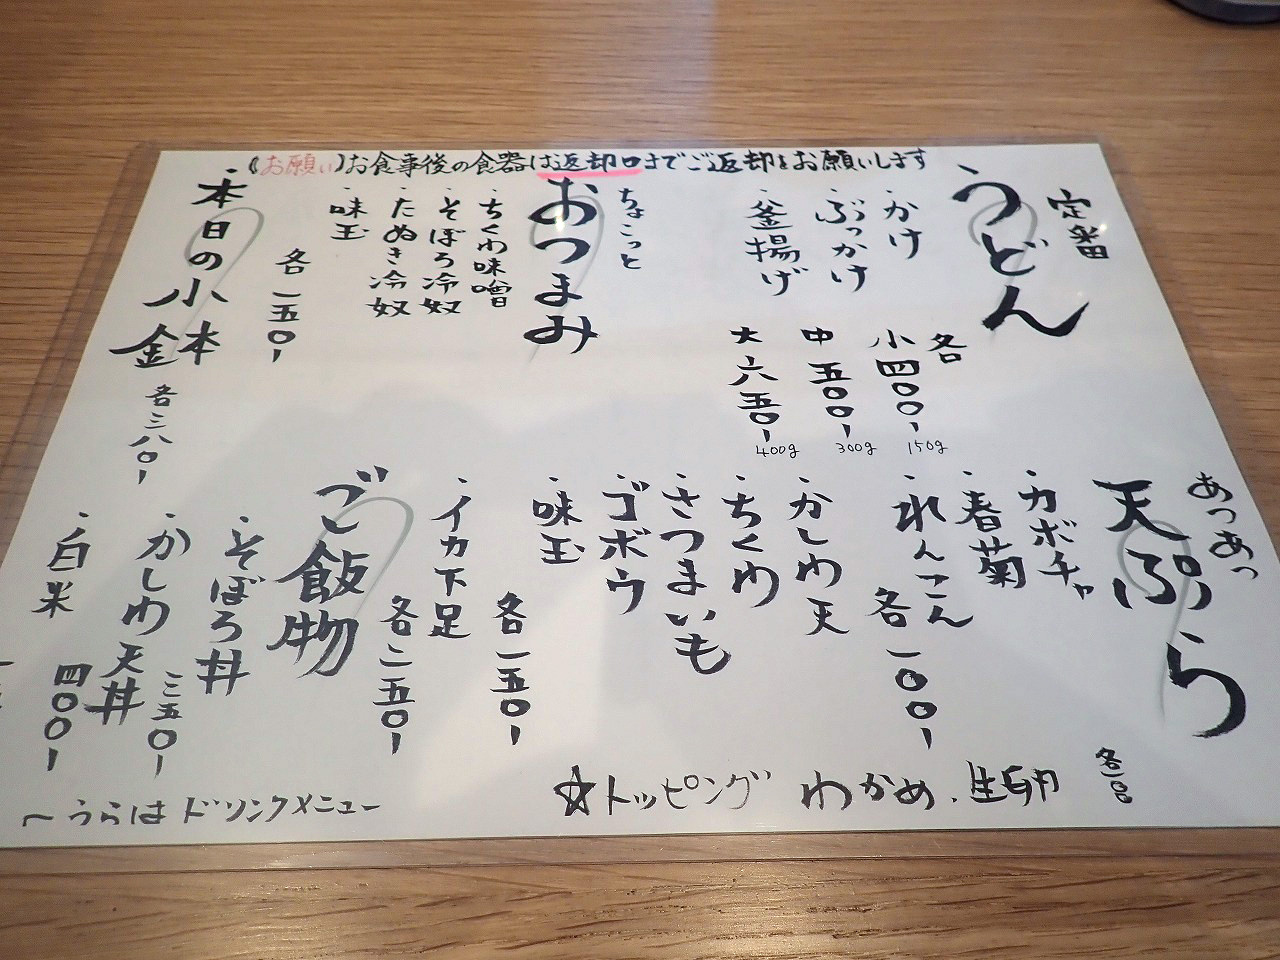 《お願い》お食事後の食器は返却口までご返却をお願いします
定番
うどん
・かけ
・ぶっかけ
・釜揚げ
各
小 四〇〇-
150g
中 五〇〇-
300g
大 六五〇-
400g
ちょこっと
おつまみ
・ちくわ味噌
・そぼろ冷奴
・たぬき冷奴
・味玉
各一五〇-
・本日の小鉢
各三八〇-
あつあつ
天ぷら
・カボチャ
・春菊
・れんこん
各一〇〇-
・かしわ天
・ちくわ
・さつまいも
・ゴボウ
・味玉
各一五〇-
・イカ下足
各二五〇-
ご飯物
・そぼろ丼
三五〇-
・かしわ天丼
四〇〇-
・白米
☆トッピング わかめ、生卵 各一〇〇
〜うらはドリンクメニュー